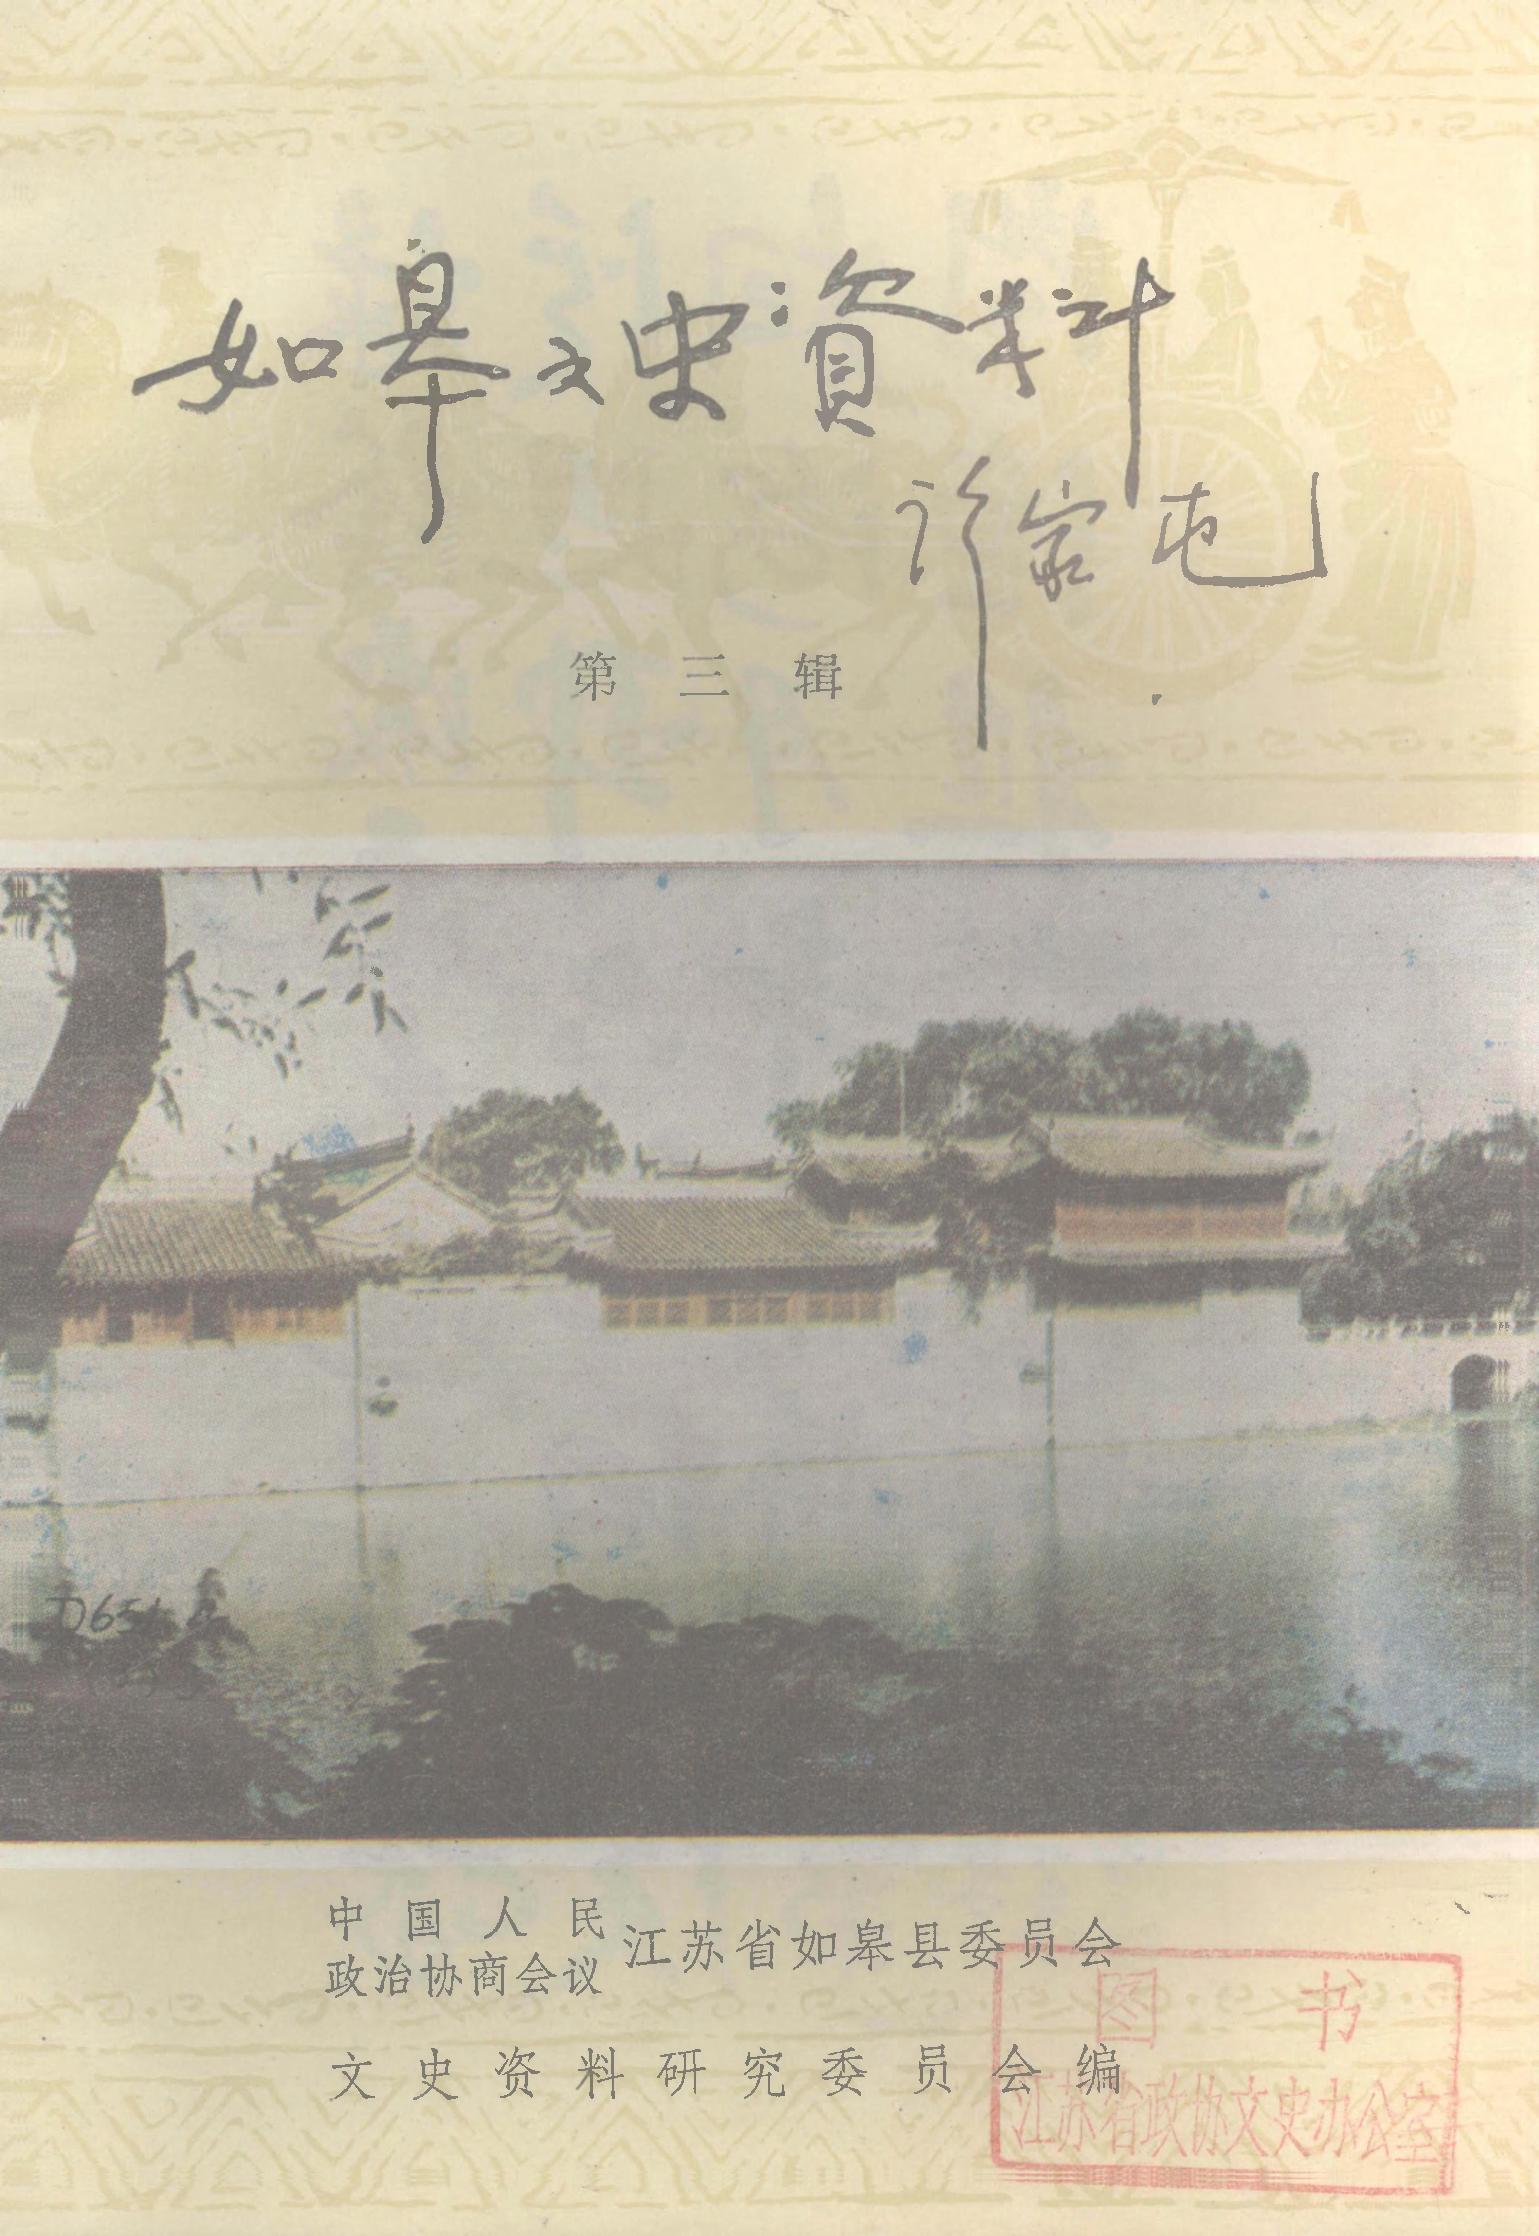 如皋文史資料
许家屯
第三辑
中国人民
政治协商会议
江苏省如皋县委员会
文史资料研究委员会编
图书
江苏省政协文史办公室